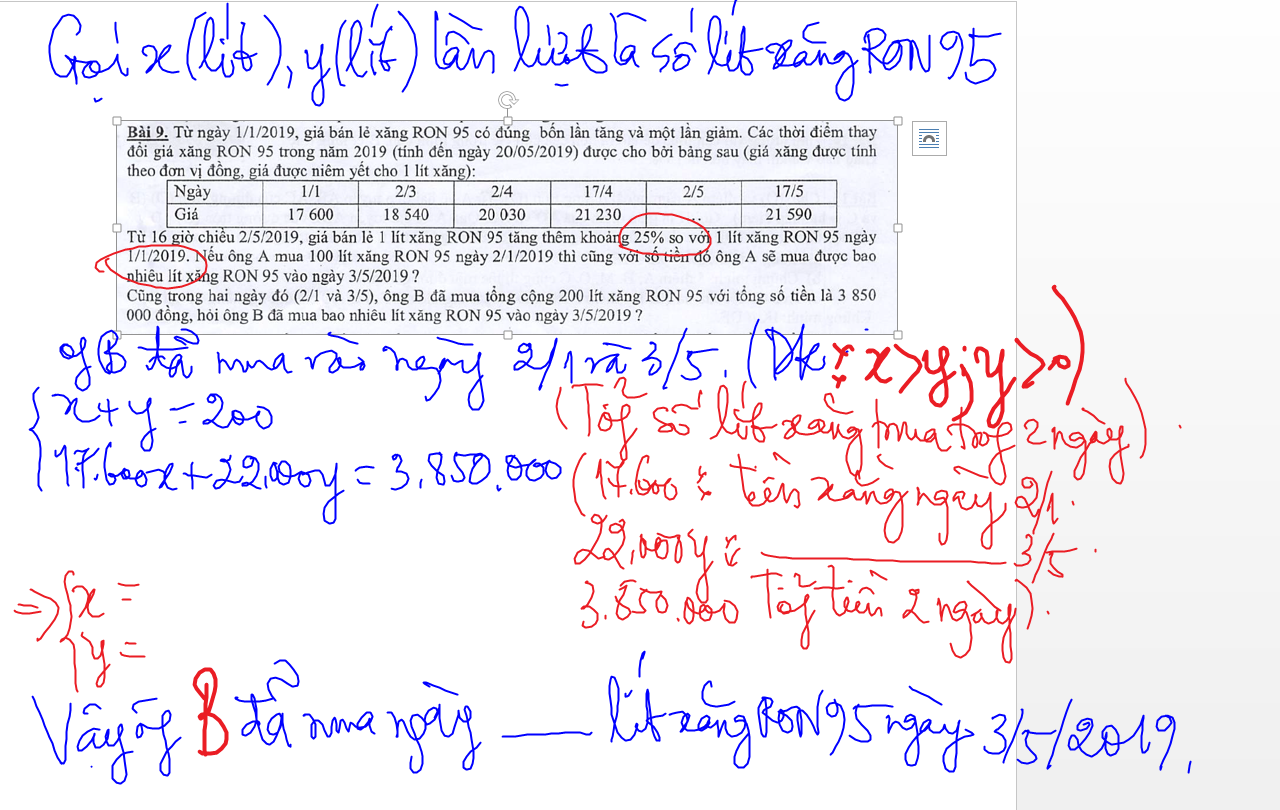 Gọi x (lít), y (lít) lần lượt là số lít xăng RON 95
Bài 9. Từ ngày 1/1/2019, giá bán lẻ xăng RON 95 có đúng bốn lần tăng và một lần giảm. Các thời điểm thay
đổi giá xăng RON 95 trong năm 2019 (tính đến ngày 20/05/2019) được cho bởi bảng sau (giá xăng được tính
theo đơn vị đồng, giá được niêm yết cho 1 lít xăng):
Ngày 1/1 2/3 2/4 17/4 2/5 17/5
Giá 17 600 18 540 20 030 21 230 ... 21 590
Từ 16 giờ chiều 2/5/2019, giá bán lẻ 1 lít xăng RON 95 tăng thêm khoảng 25% so với 1 lít xăng RON 95 ngày
1/1/2019. Nếu ông A mua 100 lít xăng RON 95 ngày 2/1/2019 thì cũng với số tiền đó ông A sẽ mua được bao
nhiêu lít xăng RON 95 vào ngày 3/5/2019 ?
Cũng trong hai ngày đó (2/1 và 3/5), ông B đã mua tổng cộng 200 lít xăng RON 95 với tổng số tiền là 3 850
000 đồng, hỏi ông B đã mua bao nhiêu lít xăng RON 95 vào ngày 3/5/2019 ?
ôg B đã mua vào ngày 2/1 và 3/5. (Đk: x>y; y>0)
x + y = 200 (Tổg số lít xăng mua trog 2 ngày).
17.600x + 22.000y = 3.850.000 (17.600 : tiền xăng ngày 2/1.
22.000y : ——— 3/5.
3.850.000 Tổg tiền 2 ngày).
=> x =
y =
Vậy ôg B đã mua ngày ___ lít xăng RON 95 ngày 3/5/2019.